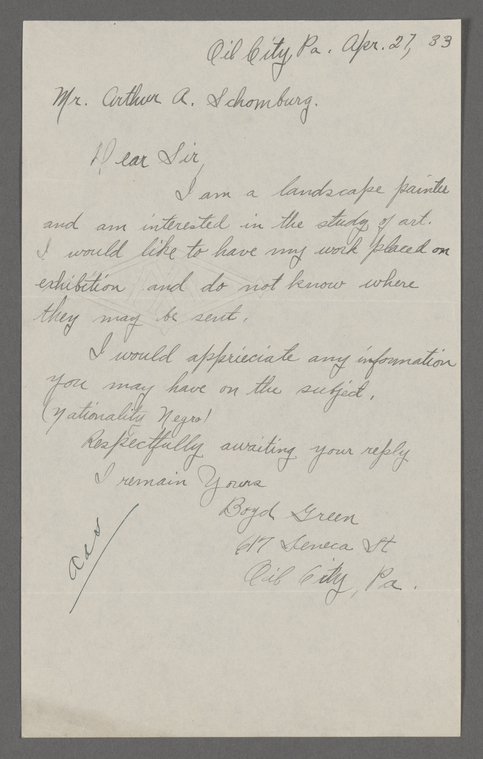 Oil City, Pa. Apr. 27, 33
Mr. Arthur A. Schomburg.
Dear Sir,
I am a landscape painter
and am interested in the study of art.
I would like to have my work placed on
exhibition and do not know where
they may be sent.
I would apprieciate any information
you may have on the subject.
(Nationality Negro)
Respectfully awaiting your reply
I remain Yours
Boyd Green
617 Seneca St
Oil City, Pa.